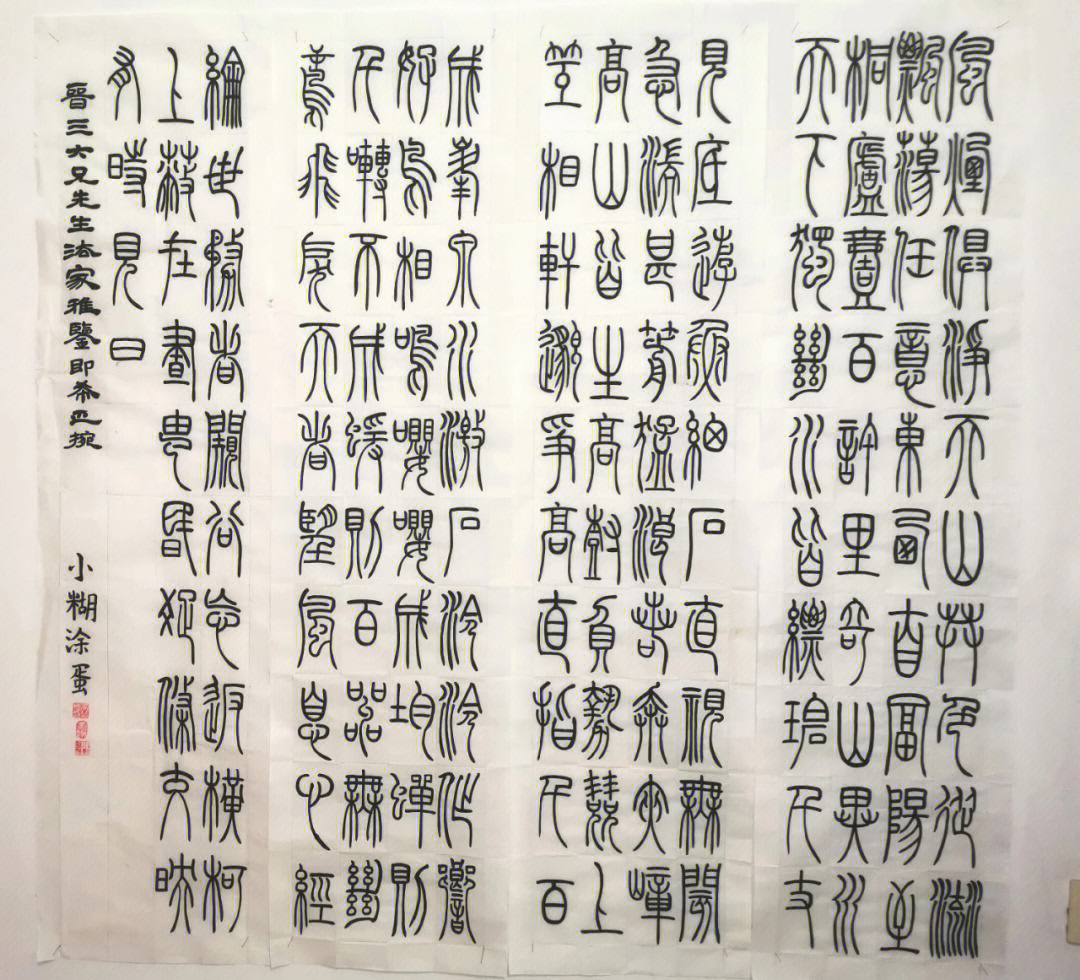 風煙俱淨天山共色從流
飄蕩任意東西自富陽至
桐廬壹百許里奇山異水
天下獨絕水皆縹碧千丈
見底遊魚細石直視無閡
急湍甚箭猛浪若奔夾嶂
高山皆生高樹負勢競上
互相軒邈爭高直指千百
成峯泉水激石泠泠作響
好鳥相鳴嚶嚶成均蟬則
千囀不成蝯則百嘂無絕
鳶飛戾天者望風息心經
綸世務者闚谷忘返橫柯
上蔽在晝昏疏條交映
有時見日
晉三大兄先生法家雅鑒即希正捥
小糊涂蛋